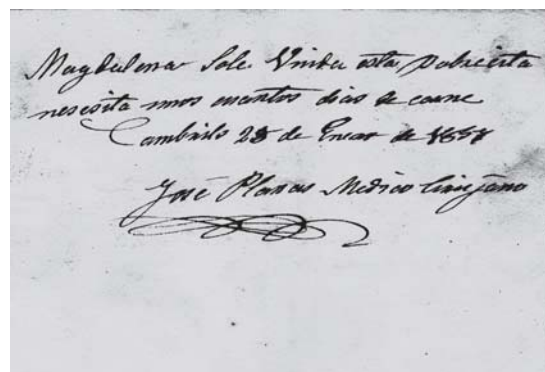 Magdalena Sole Viuda esta pobrecita
nesesita unos cuantos dias de carne
Cambrils 28 de Enero de
José Planas Medico Cirujano